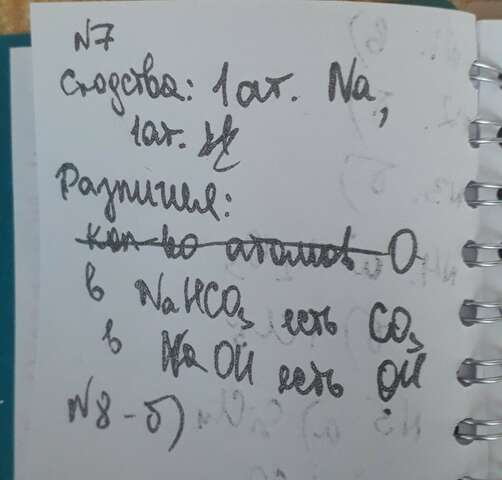 N7
Сходства: 1 ат. Na,
1 ат. H
Различия:
кол-во атомов O
в NaHCO₃ есть CO₃
в NaOH есть OH
N8 - б)